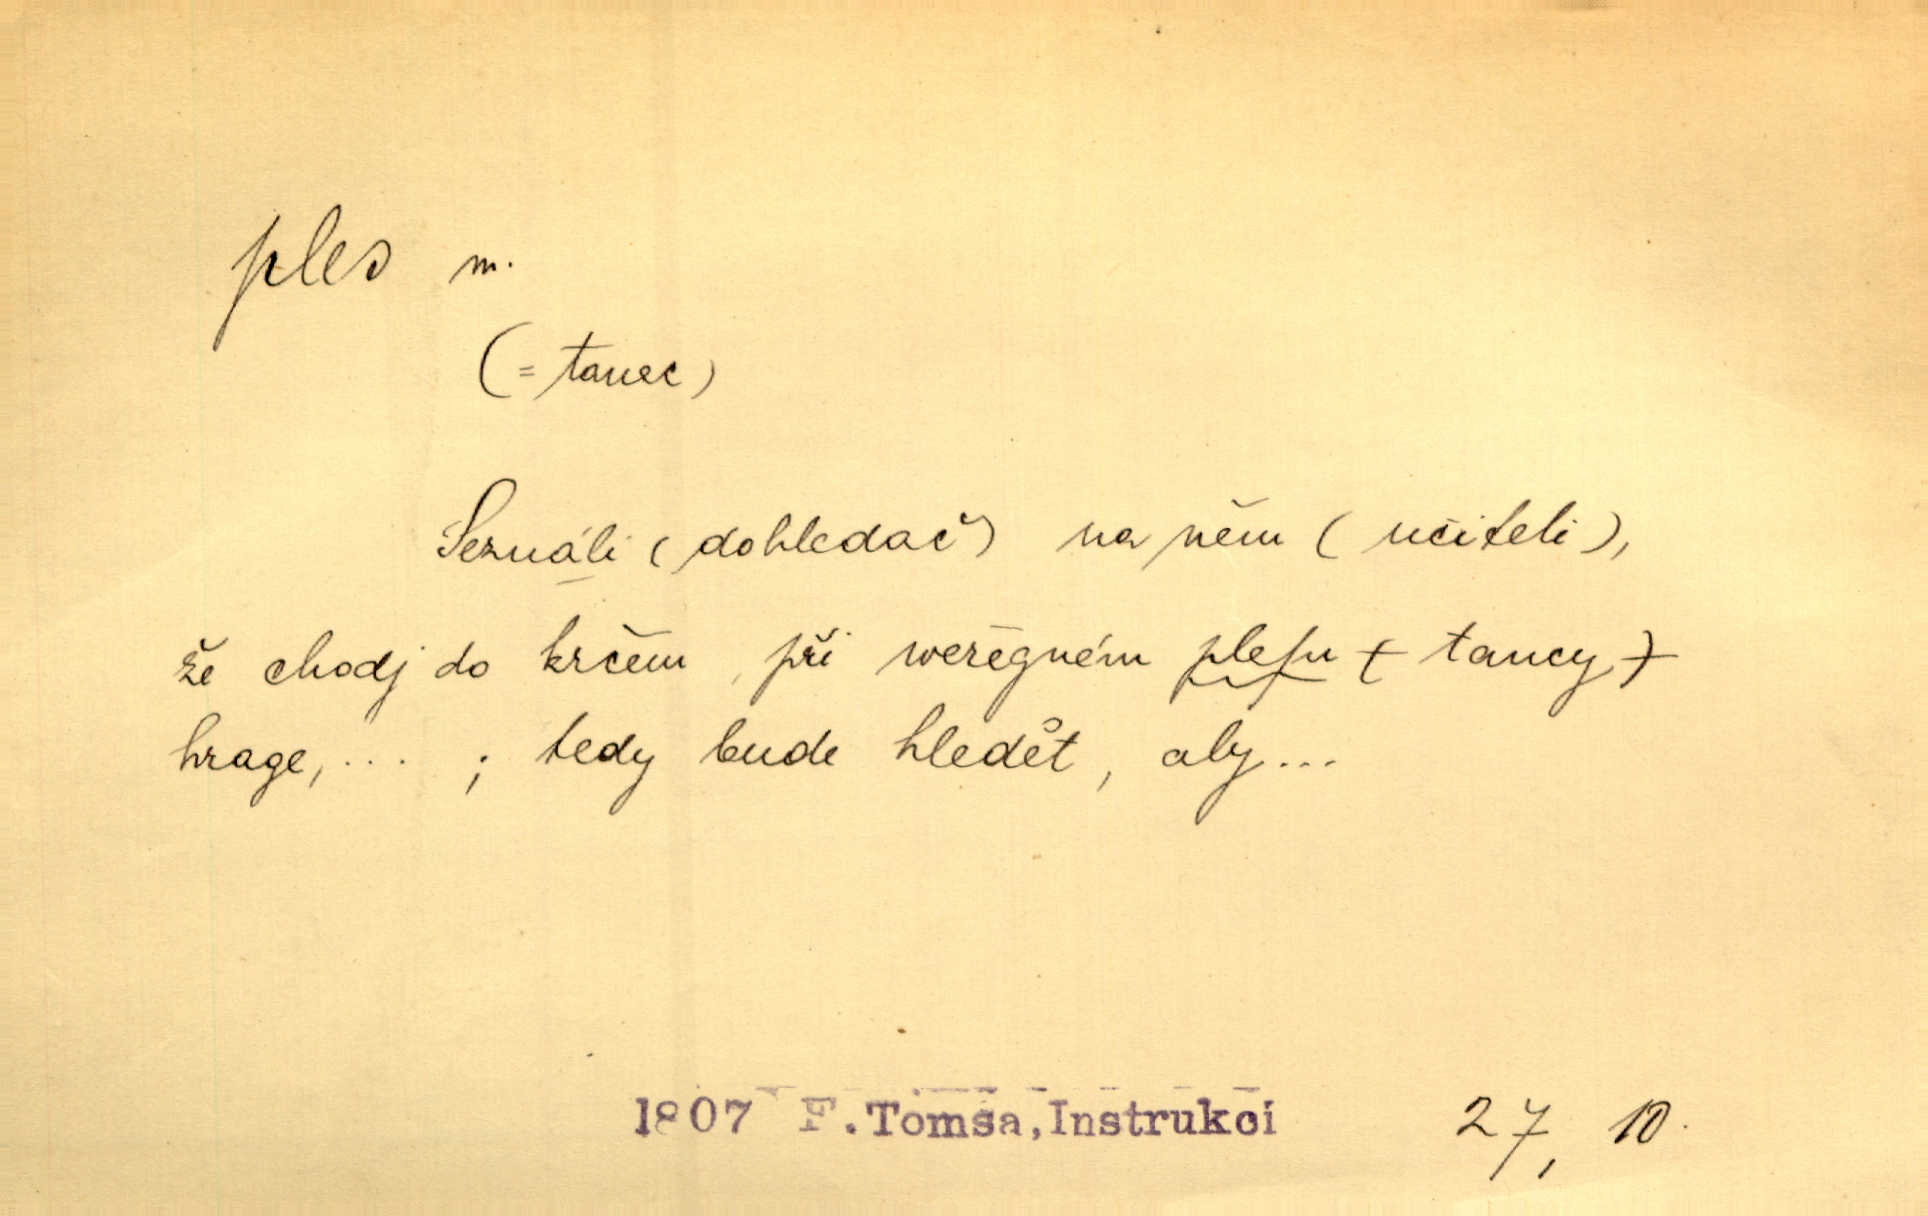 ples m.
(= tanec)
Seználi (dohledač) na něm (učiteli),
že chodj do krčem, při weřegném pleſu (tancy)
hrage,... ; tedy bude hledět, aby...
1807 F.Tomsa,Instrukcí 27, 10.